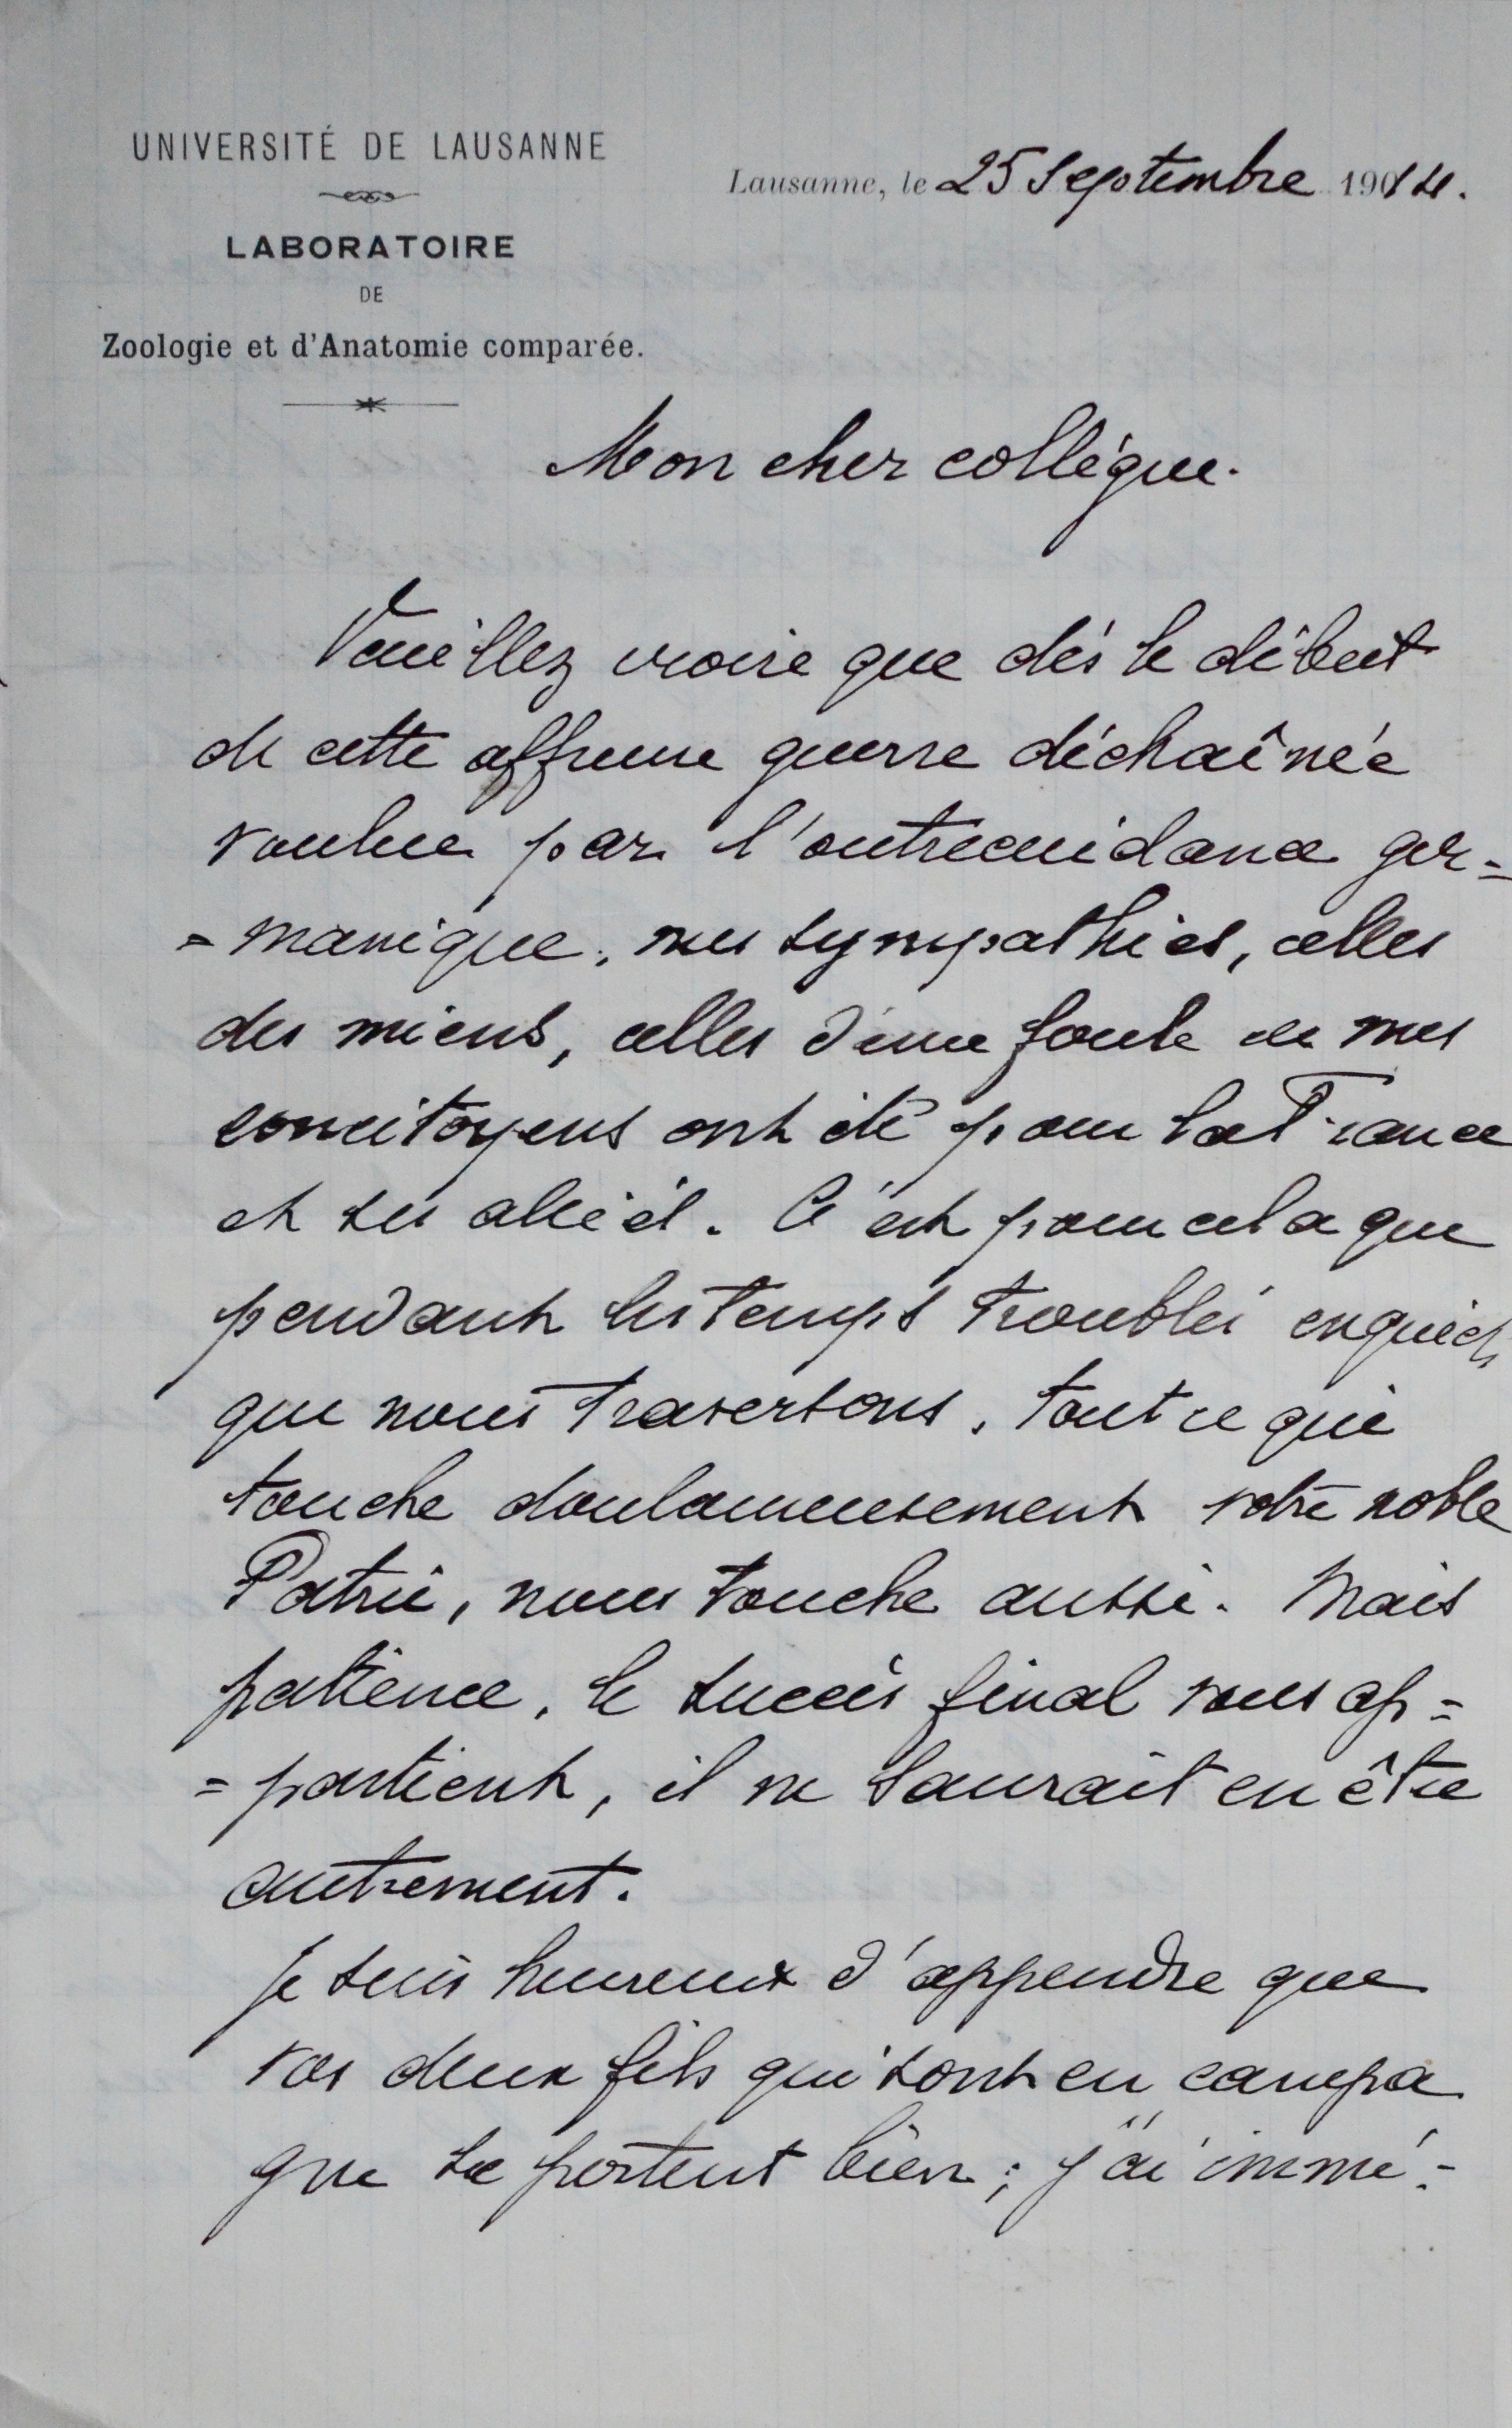 UNIVERSITÉ DE LAUSANNE
Lausanne, le 25 Septembre 1914.
LABORATOIRE
DE
Zoologie et d'Anatomie comparée.
Mon cher collègue.
Veuillez croire que dès le début
de cette affreuse guerre déchaînée
voulue par l'outrecuidance ger=
=manique, mes sympathies, celles
des miens, celles d'une foule de mes
concitoyens ont été pour la France
et ses alliés. C'est pour cela que
pendant les temps troublés
que nous traversons, tout ce qui
touche douloureusement votre noble
Patrie, nous touche aussi. Mais
patience, le succès final vous ap=
=partient, il ne saurait en être
autrement.
Je suis heureux d'apprendre que
vos deux fils qui sont en campa
gne se portent bien; j'ai immé-